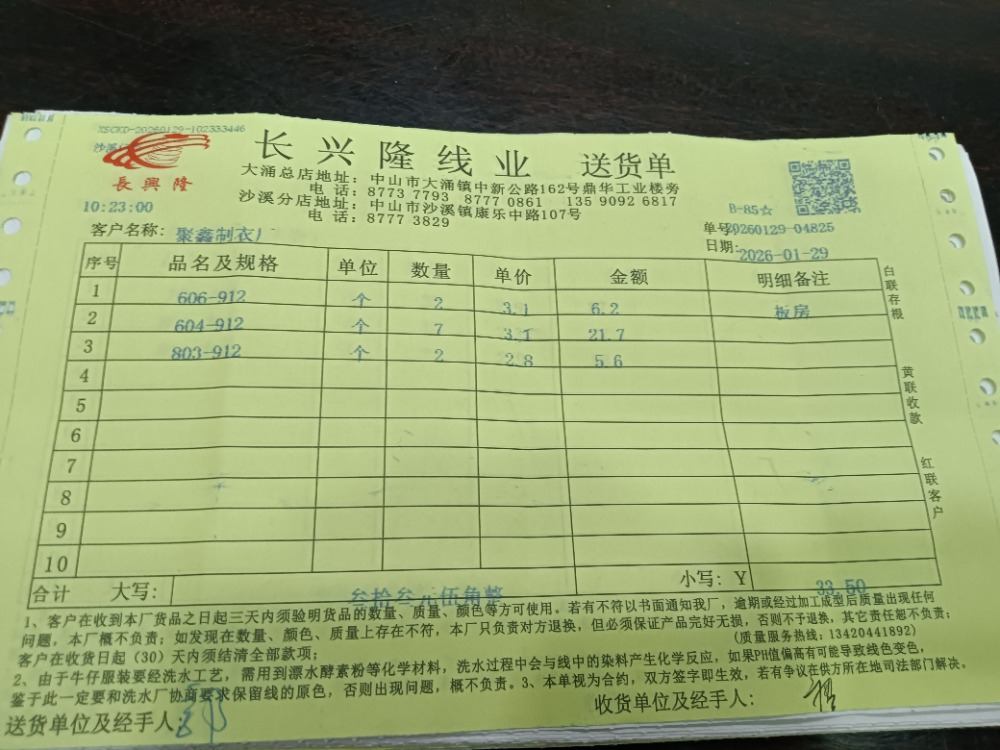 XSCKD-20260129-102333446
沙溪
長興隆
长兴隆线业 送货单
大涌总店地址：中山市大涌镇中新公路162号鼎华工业楼旁
电话：8773 7793 8777 0861 135 9092 6817
沙溪分店地址：中山市沙溪镇康乐中路107号
电话：8777 3829
10:23:00
B-85☆
单号 20260129-04825
客户名称：聚鑫制衣厂
日期：2026-01-29
序号 品名及规格 单位 数量 单价 金额 明细备注
1 606-912 个 2 3.1 6.2 板房
2 604-912 个 7 3.1 21.7
3 803-912 个 2 2.8 5.6
4
5
6
7
8
9
10
合计 大写：叁拾叁元伍角整 小写：Y 33.50
白联存根
黄联收款
红联客户
1、客户在收到本厂货品之日起三天内须验明货品的数量、质量、颜色等方可使用。若有不符以书面通知我厂，逾期或经过加工成型后质量出现任何
问题，本厂概不负责；如发现在数量、颜色、质量上存在不符，本厂只负责对方退换，但必须保证产品完好无损，否则不予退换，其它责任恕不负责；
客户在收货日起（30）天内须结清全部款项；
(质量服务热线：13420441892)
2、由于牛仔服装要经洗水工艺，需用到漂水酵素粉等化学材料，洗水过程中会与线中的染料产生化学反应，如果PH值偏高有可能导致线色变色，
鉴于此一定要和洗水厂协商要求保留线的原色，否则出现问题，概不负责。3、本单视为合约，双方签字即生效，若有争议在供方所在地司法部门解决。
送货单位及经手人：
收货单位及经手人：